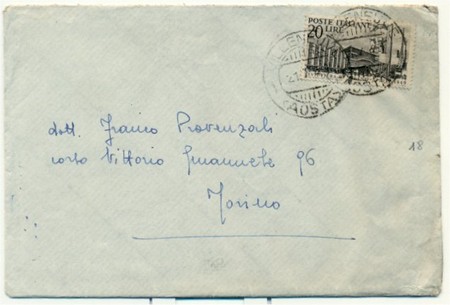 POSTE ITALIANE
20
LIRE
VILLENEUVE
(AOSTA)
dott. Franco Provenzali
corso Vittorio Emanuele 96
Torino
18